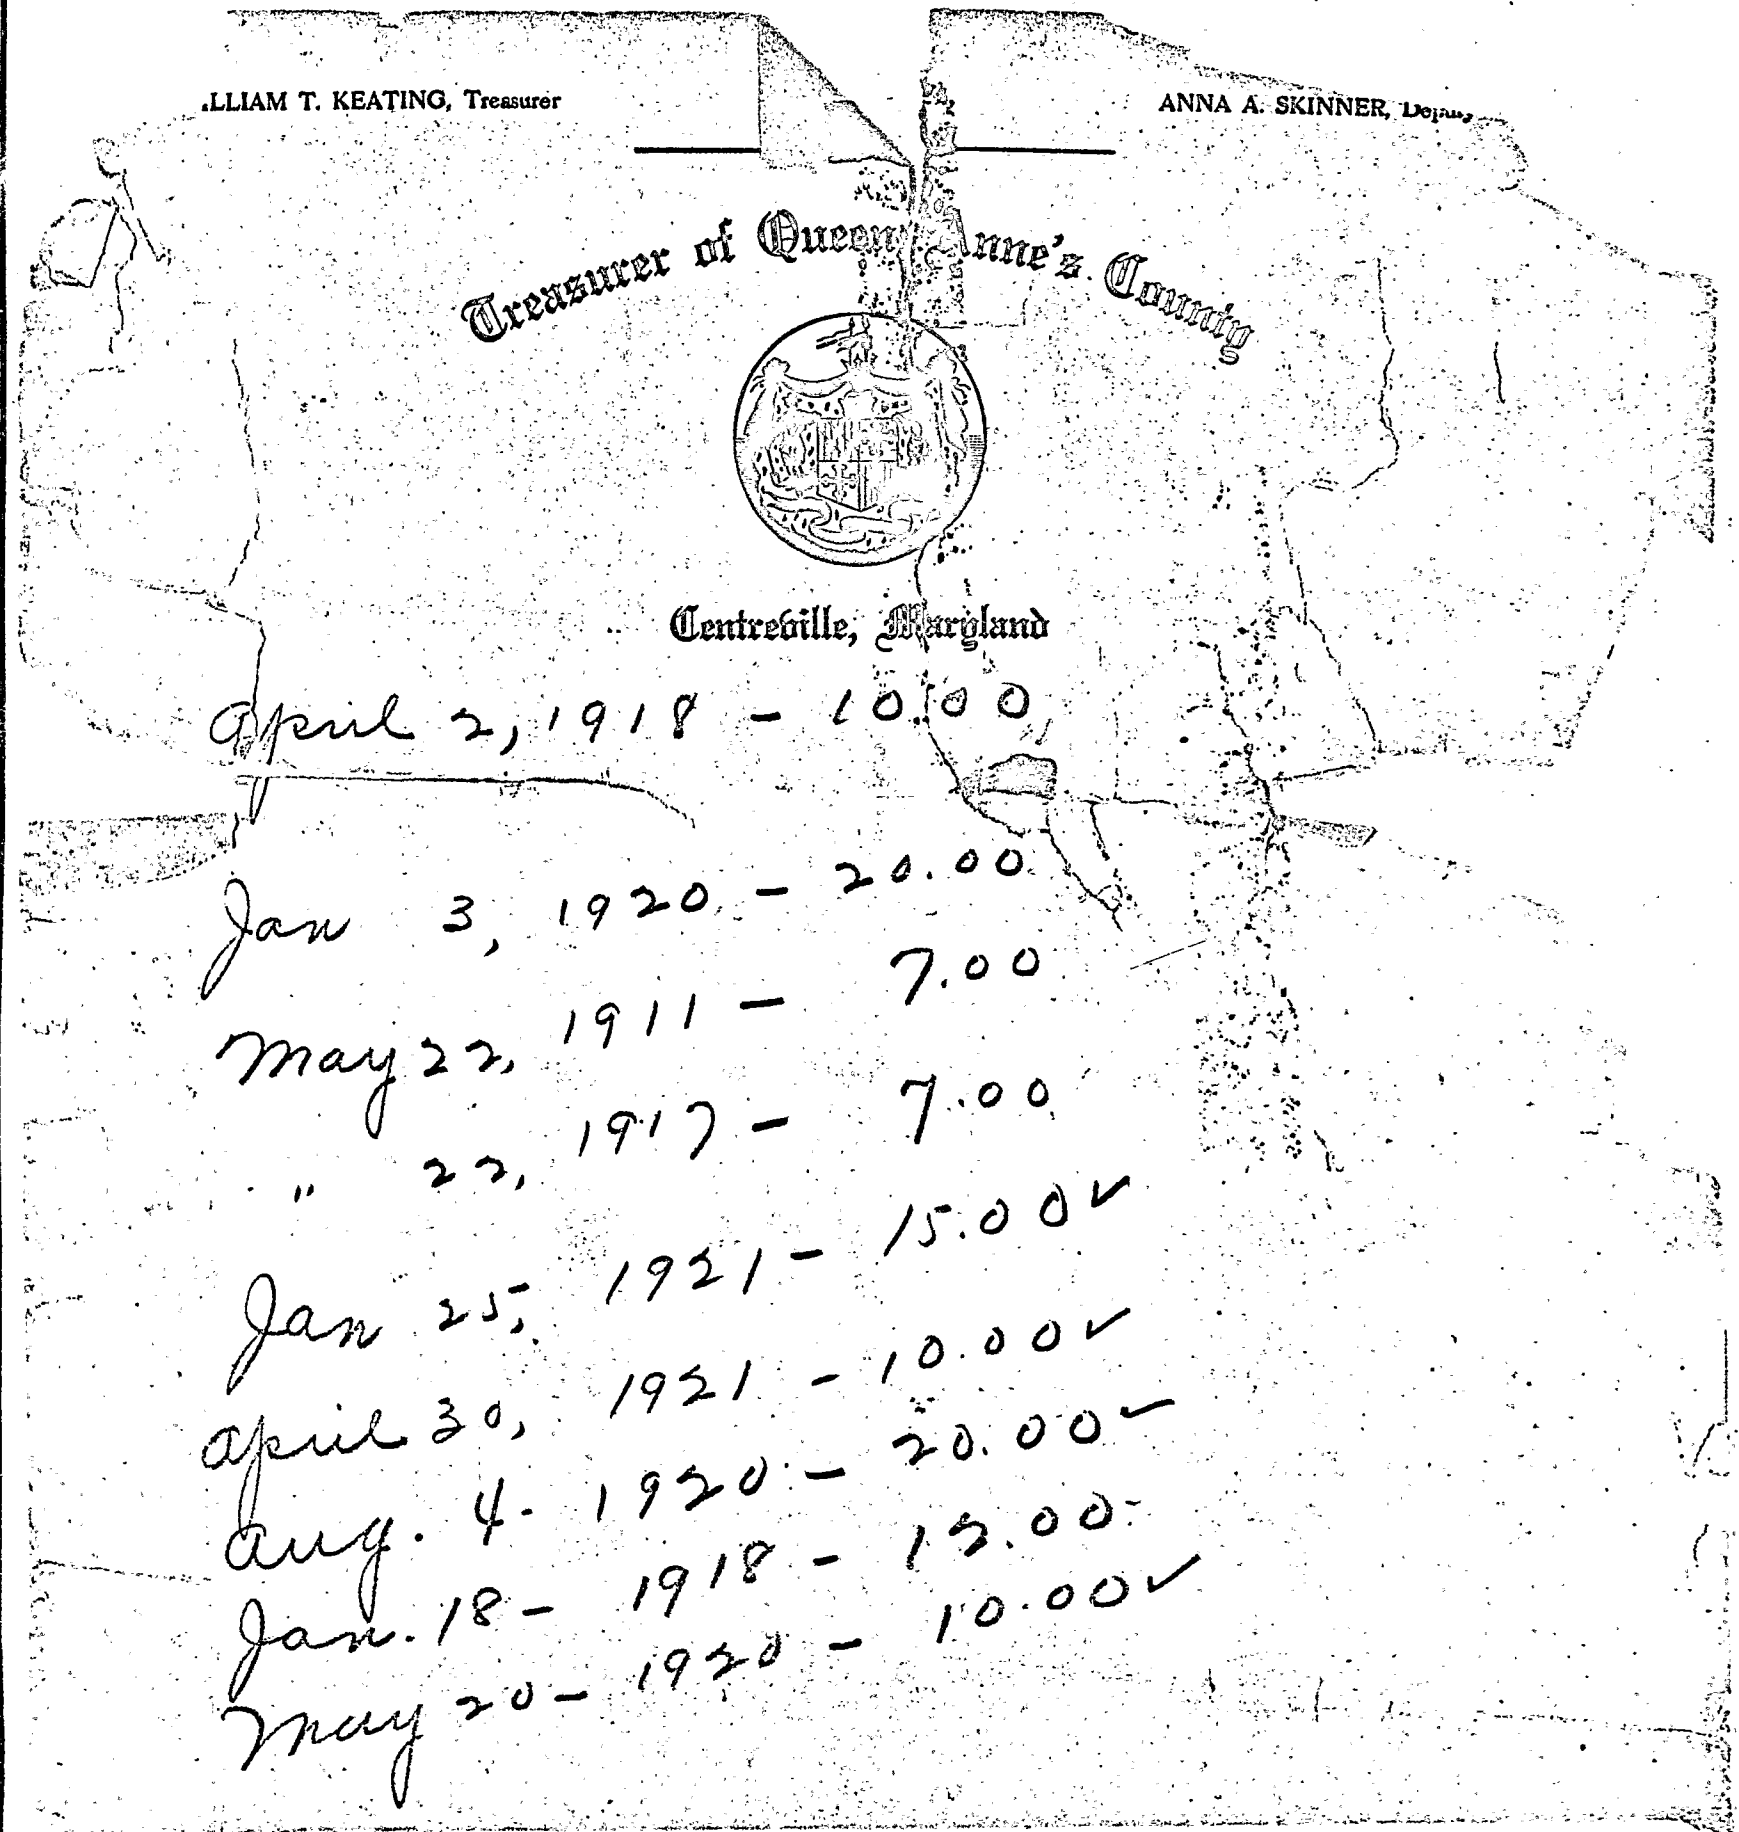 .LLIAM T. KEATING, Treasurer
ANNA A. SKINNER,
Treasurer of Queen Anne's County
Centreville, Maryland
April 2, 1918 - 10.00
Jan 3, 1920 - 20.00
May 22, 1911 - 7.00
" 22, 1917 - 7.00
Jan 25, 1921 - 15.00 ✓
April 30, 1921 - 10.00 ✓
Aug. 4. 1920 - 20.00 ✓
Jan. 18 - 1918 - 12.00-
May 20 - 1920 - 10.00 ✓